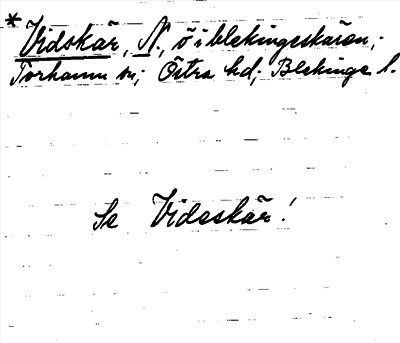 * Vidskär, N., ö i blekingeskären;
Torhamn sn; Östra hd; Blekinge l.
Se Videskär!